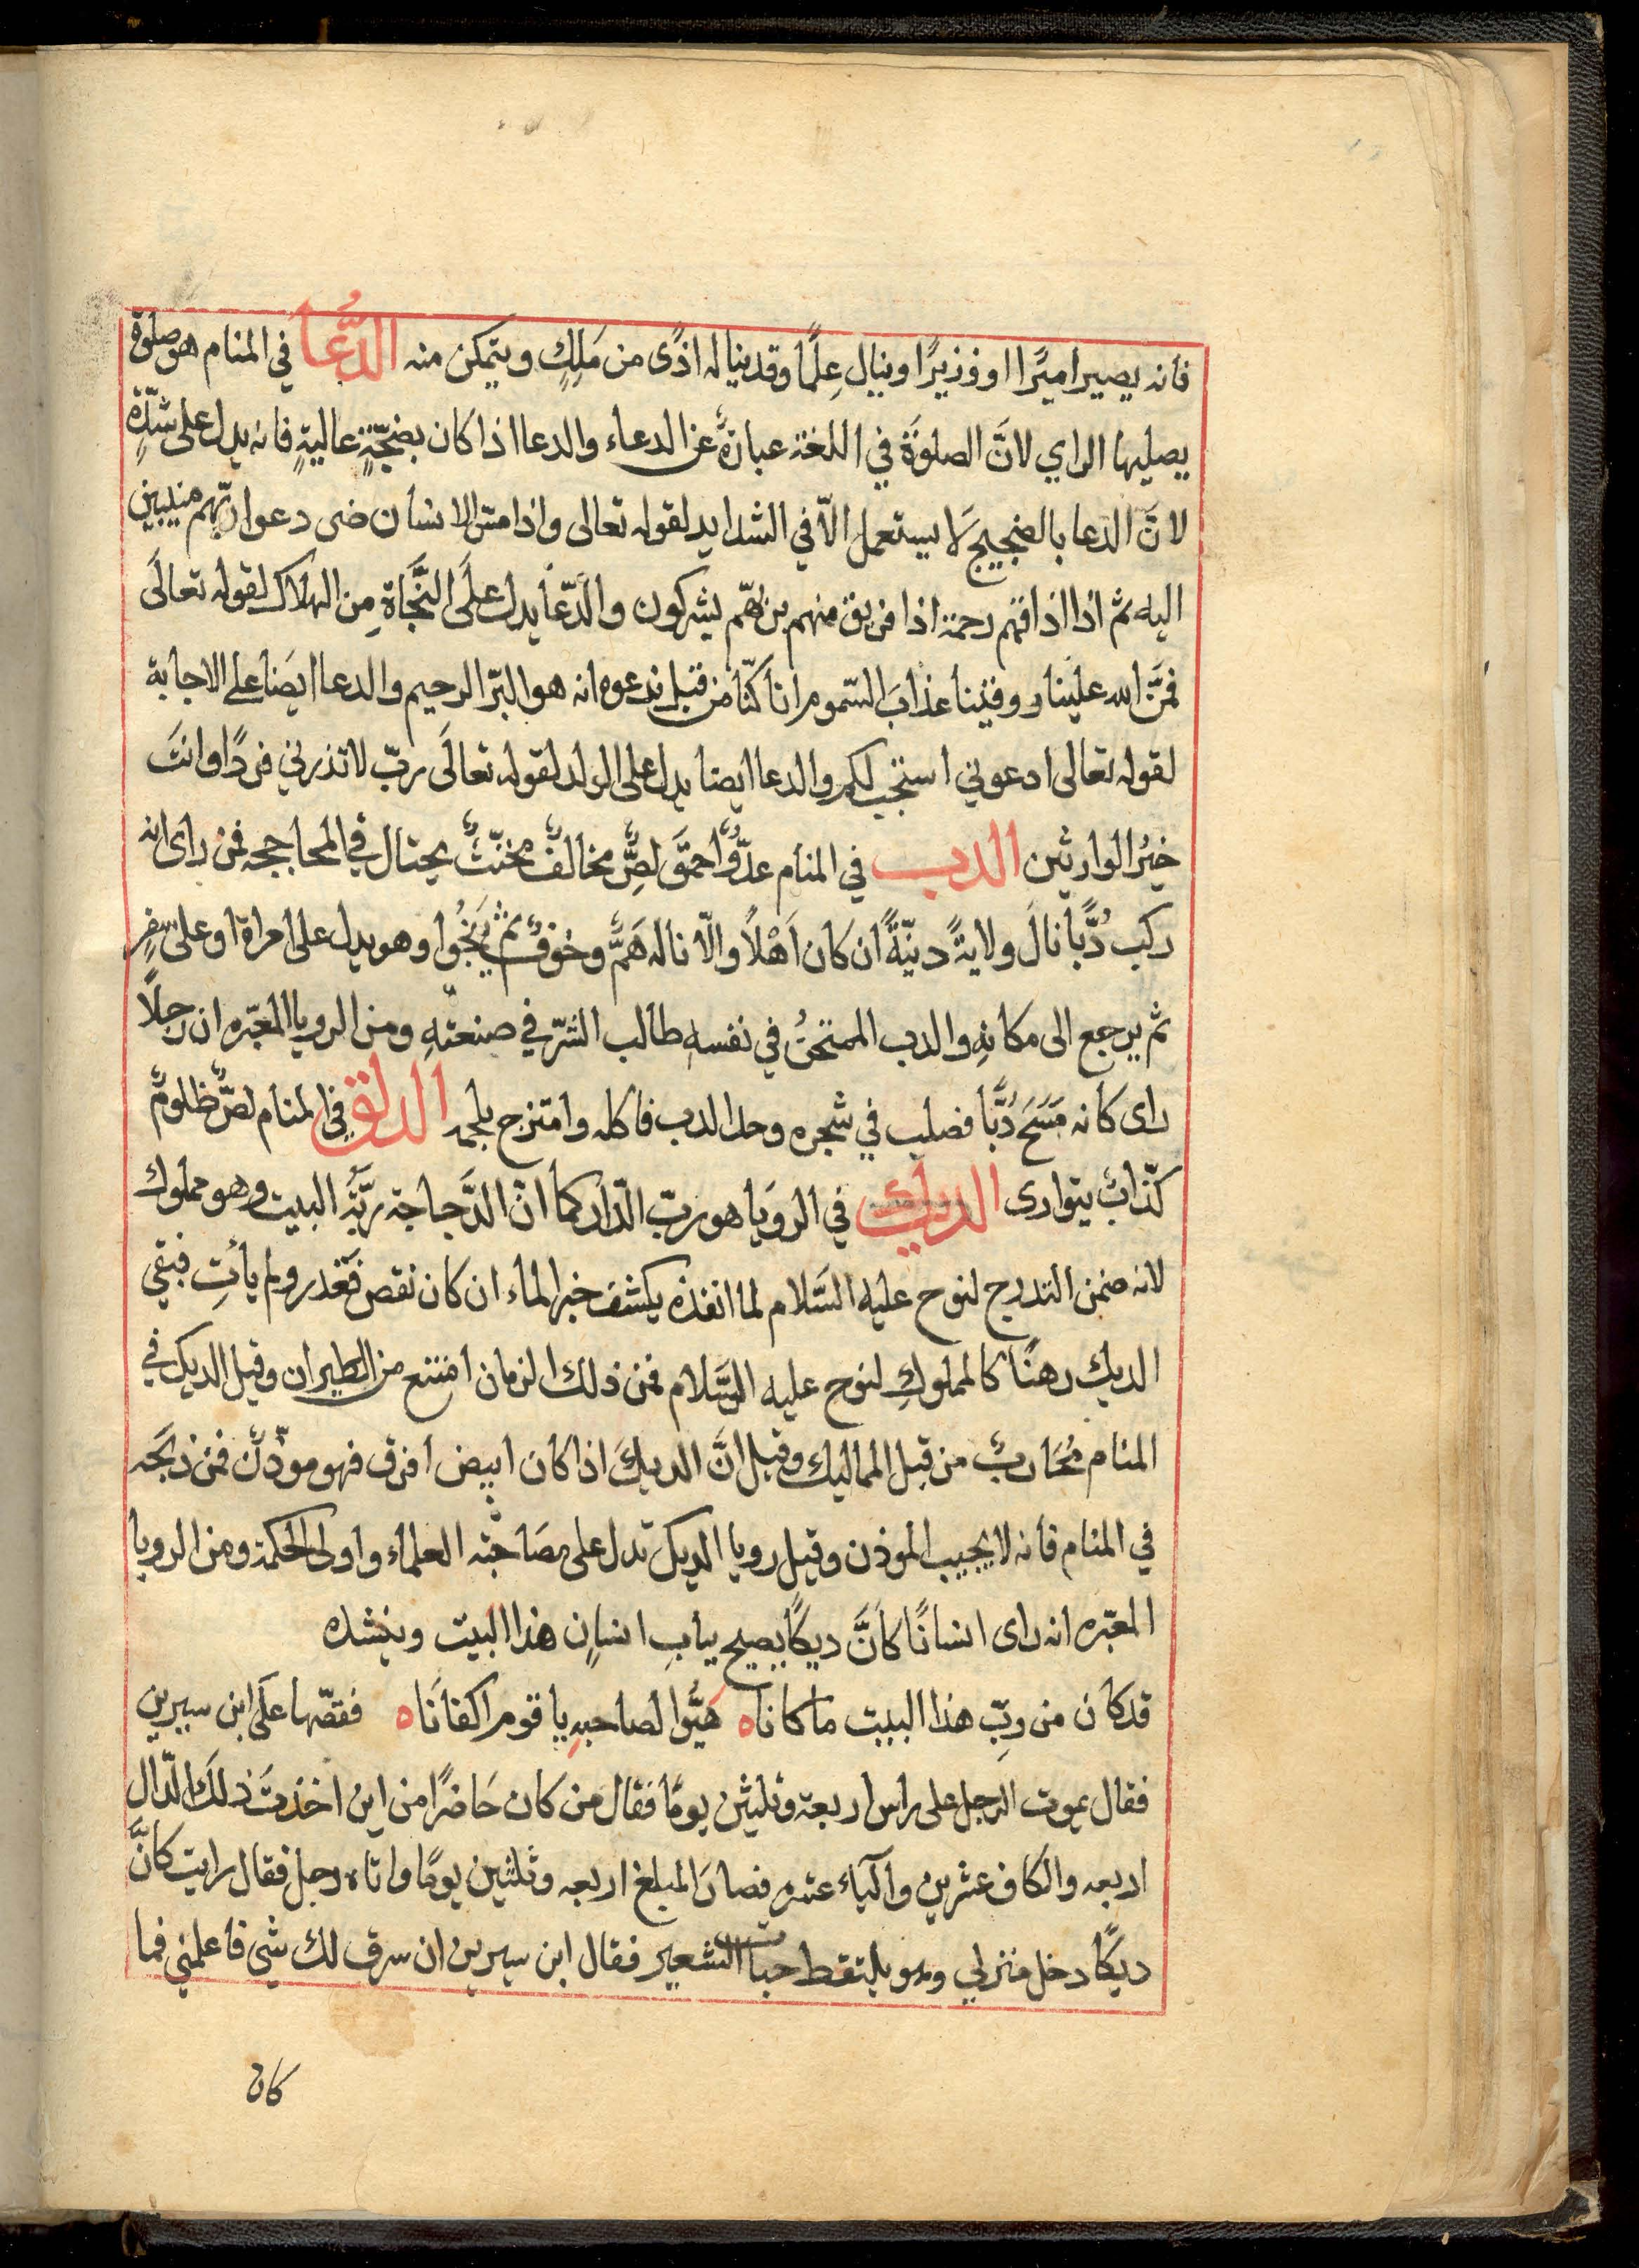 فانه يصير اميرًا او وزيرًا وينال عِلمًا وقد يناله اذًى من مَلِكٍ ويتمكن منه الدُّعا في المنام هو صلوة
يصليها الراي لانَّ الصلوَةَ في اللغة عبارةٌ عن الدعاء والدعا اذا كان بضجّةٍ عاليةٍ فانه يدل على شدّةٍ
لانَّ الدعا بالضجيج لَا يستعمل الّا في الشدايد لقوله تعالى واذا مسّ الانسان ضر دعوا ربّهم منيبين
اليه ثم اذا اذاقهم رحمة اذا فريق منهم بربّهم يشركون والدّعا يدل علَى النَّجَاةِ من الهلاك لقوله تعالَى
فمَنَّ الله علينا ووقينا عذابَ السّموم انا كنّا من قبل ندعوه انه هو البرّ الرحيم والدعا ايضَا على الاجابة
لقوله تعالى ادعوني استجب لكم والدعا ايضا يدل على الولد لقوله تعالَى ربّ لا تذرني فردًا وانتَ
خيْر الوارثين الدب في المنام عدوٌّ احمقَ لصٌّ مخالفٌ مخنّثٌ يحتال في المحاججه فمن راى انه
ركب دُبًّا نالَ ولايةً دنيّةً ان كان اَهْلاً والّا ناله هَمٌّ وخوفٌ ثم يَنجُوا وهو يدل على امراة او على سفرٍ
ثم يرجع الى مكانهِ والدب الممتحنُ في نفسهِ طالب الشرّ في صنعتهِ ومن الرويا المعبّره ان رجلًا
راى كانه مَسَحَ دُبًّا فصلب في شجره وحل الدب فاكله وامتزج بلحمه الدلق في المنام لصٌّ ظلومٌ
كذّابٌ يتوارى الديك في الروَيا هو ربّ الدّار كما انّ الدَّجاجة ربَّةُ البيت وهو مملوك
لانه ضمن التدرج لنوح عليه السَّلام لما انفذه يكشف خبر الماء ان كان نقص فغدر ولم يأتِ فبقي
الديك رهنًا كالمملوكِ لنوح عليه السَّلام فمن ذلك الزمان امتنع من الطيران وقيل الديك في
المنام مُحَاربٌ من قبل المماليك وقيل انَّ الديكَ اذا كان ابيض افرق فهو موذّن فمن ذبحَه
في المنام فانه لا يجيب الموذن وقيل رويا الديك تدل على مصَاحبَة العلماء واولى الحكمة ومن الرويا
المعبّره انه راى انسانًا كانَّ ديكًا يصيح ببابِ انسانٍ هذا البيت وينشده
قد كان من ربّ هذا البيت ما كاناه هَيُّوا لصاحبهِ يا قوم اكفاناه فقصّها علَى ابن سيرين
فقال يموت الرجل على راس اربعة وثلثين يومًا فقال من كان حَاضرًا من اين اخذت ذلك الدّال
اربعه والكاف عشرين والياء عشره فصارَ المبلغ اربعه وثلثين يومًا واتاه رجل فقال رايت كانَّ
ديكًا دخل منزلي وهو يلتقط حبات الشعير فقال ابن سيرين ان سرق لك شي فاعلمني فما
كان